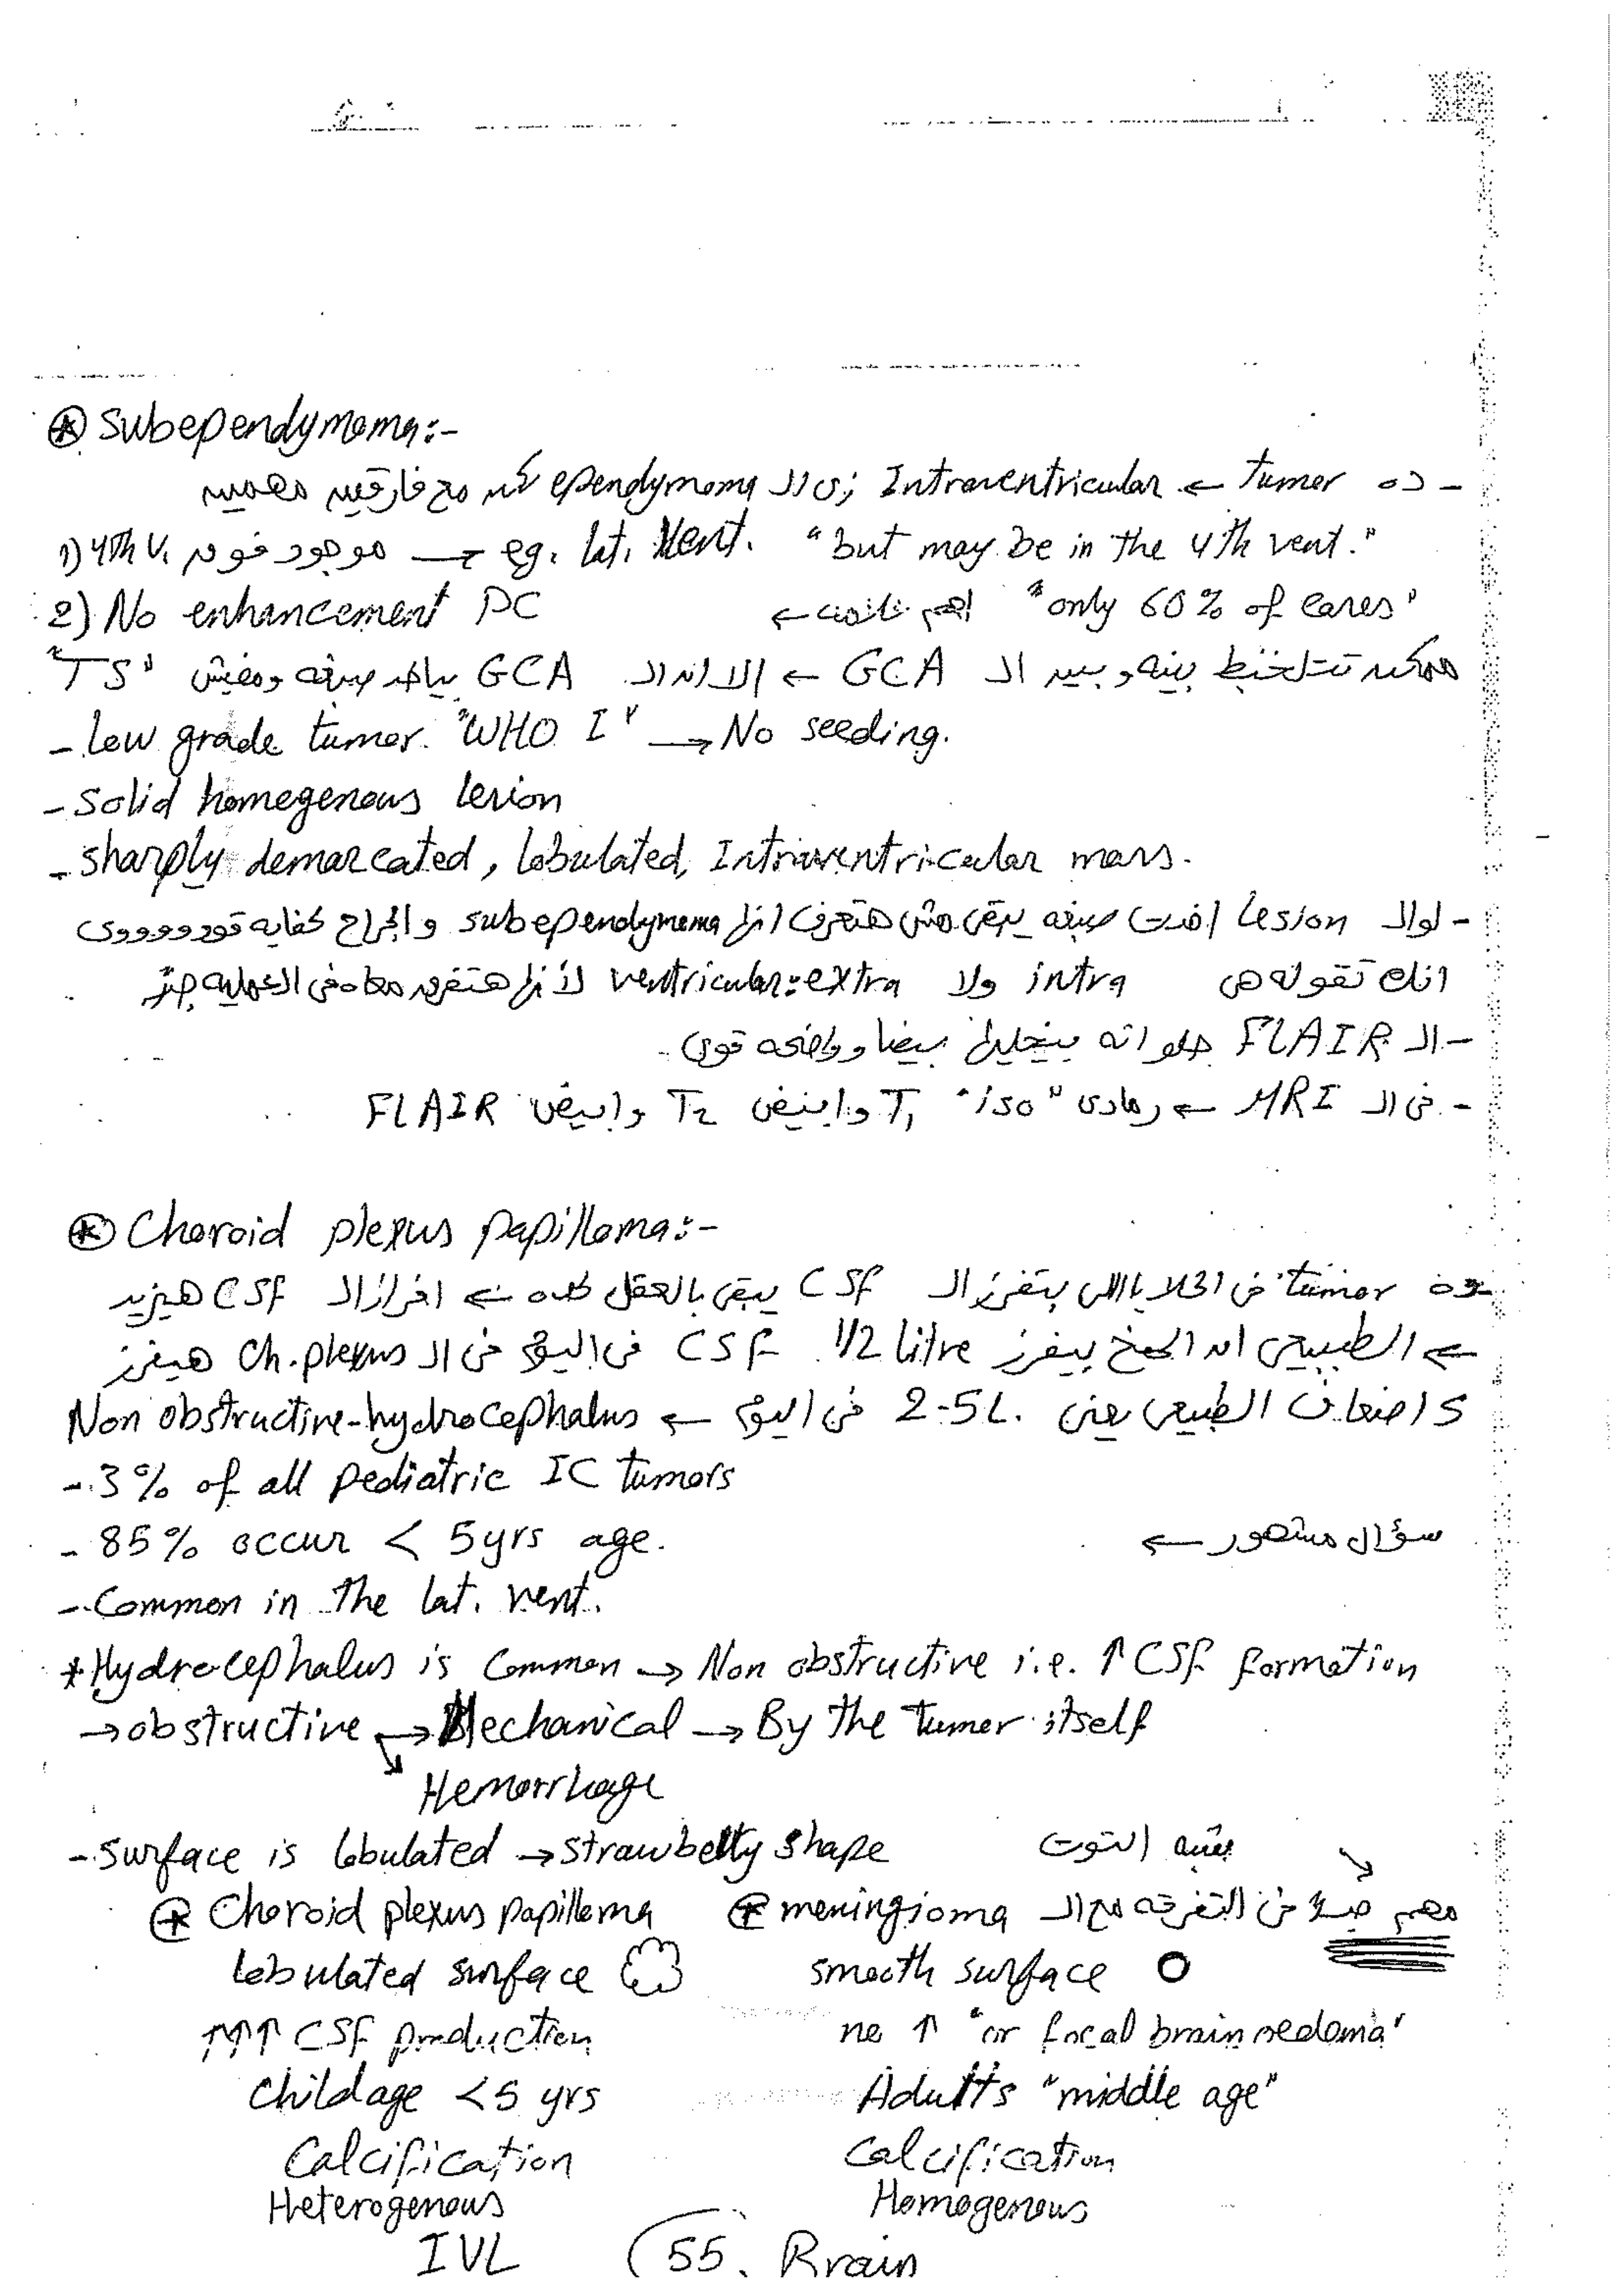 ⊛ Subependymoma:-
- ده tumor ← Intraventricular زى ال ependymoma لكن مع فارقين مهمين
1) 4th V. موجود فوق → eg. lat. Vent. "but may be in the 4th vent."
2) No enhancement PC ← اهم نقطة "only 60% of cases"
ممكن تتلخبط بينه وبين ال GCA ← الا ان ال GCA بياخد صبغه ومفيش "TS"
- Low grade tumor. "WHO I" → No seeding.
- Solid homogenous lesion
- sharply demarcated, lobulated, Intraventricular mass.
- لو ال lesion اخدت صبغه يبقى مش هتعرف انها subependymoma والجراح كفايه قوووووى
انك تقوله هى intra ولا extra ventricular: لأنها هتفرق معاه فى العمليه جدًا
- ال FLAIR حلو انه بيخليها بيضا وواضحه قوى.
- فى ال MRI ← رمادى "iso" T1 وابيض T2 وابيض FLAIR
⊛ Choroid plexus papilloma:-
- ده tumor فى الخلايا اللى بتفرز ال CSF يبقى بالعقل كده ← افراز ال CSF هيزيد
← الطبيعى ان المخ بيفرز 1/2 litre CSF فى اليوم فى ال Ch. plexus هيفرز
5 اضعاف الطبيعى يعنى 2-5L. فى اليوم ← Non obstructive-hydrocephalus
- 3% of all pediatric IC tumors
- 85% occur < 5yrs age. ← سؤال مشهور
- Common in the lat. vent.
* Hydrocephalus is common → Non obstructive i.e. ↑ CSF formation
→ obstructive → Mechanical → By the tumor itself
↘ Hemorrhage
- surface is lobulated → strawberry shape يشبه التوت
⊛ Choroid plexus papilloma ⊛ meningioma مهم جدًا فى التفرقه مع ال
lobulated surface smooth surface
↑↑↑ CSF production no ↑ "or focal brain oedema"
Child age <5 yrs Adults "middle age"
Calcification Calcification
Heterogenous Homogenous
IVL 55. Brain